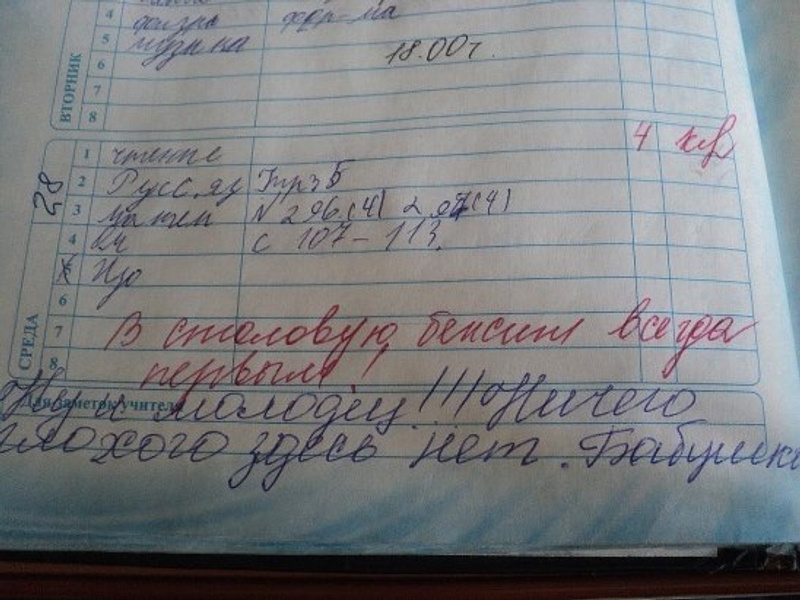 4 физра форма
5 музыка 18.00 г.
6
7
8
ВТОРНИК
28
1 чтение 4
2 Русс.яз Упр 5
3 N 296.(4) 297(4)
4 с 107-113.
5 Изо
6
7 В столовую бежит всегда
8 первым!
СРЕДА
Для заметок учителя
Ну и молодец!!! Ничего
плохого здесь нет. Бабушка